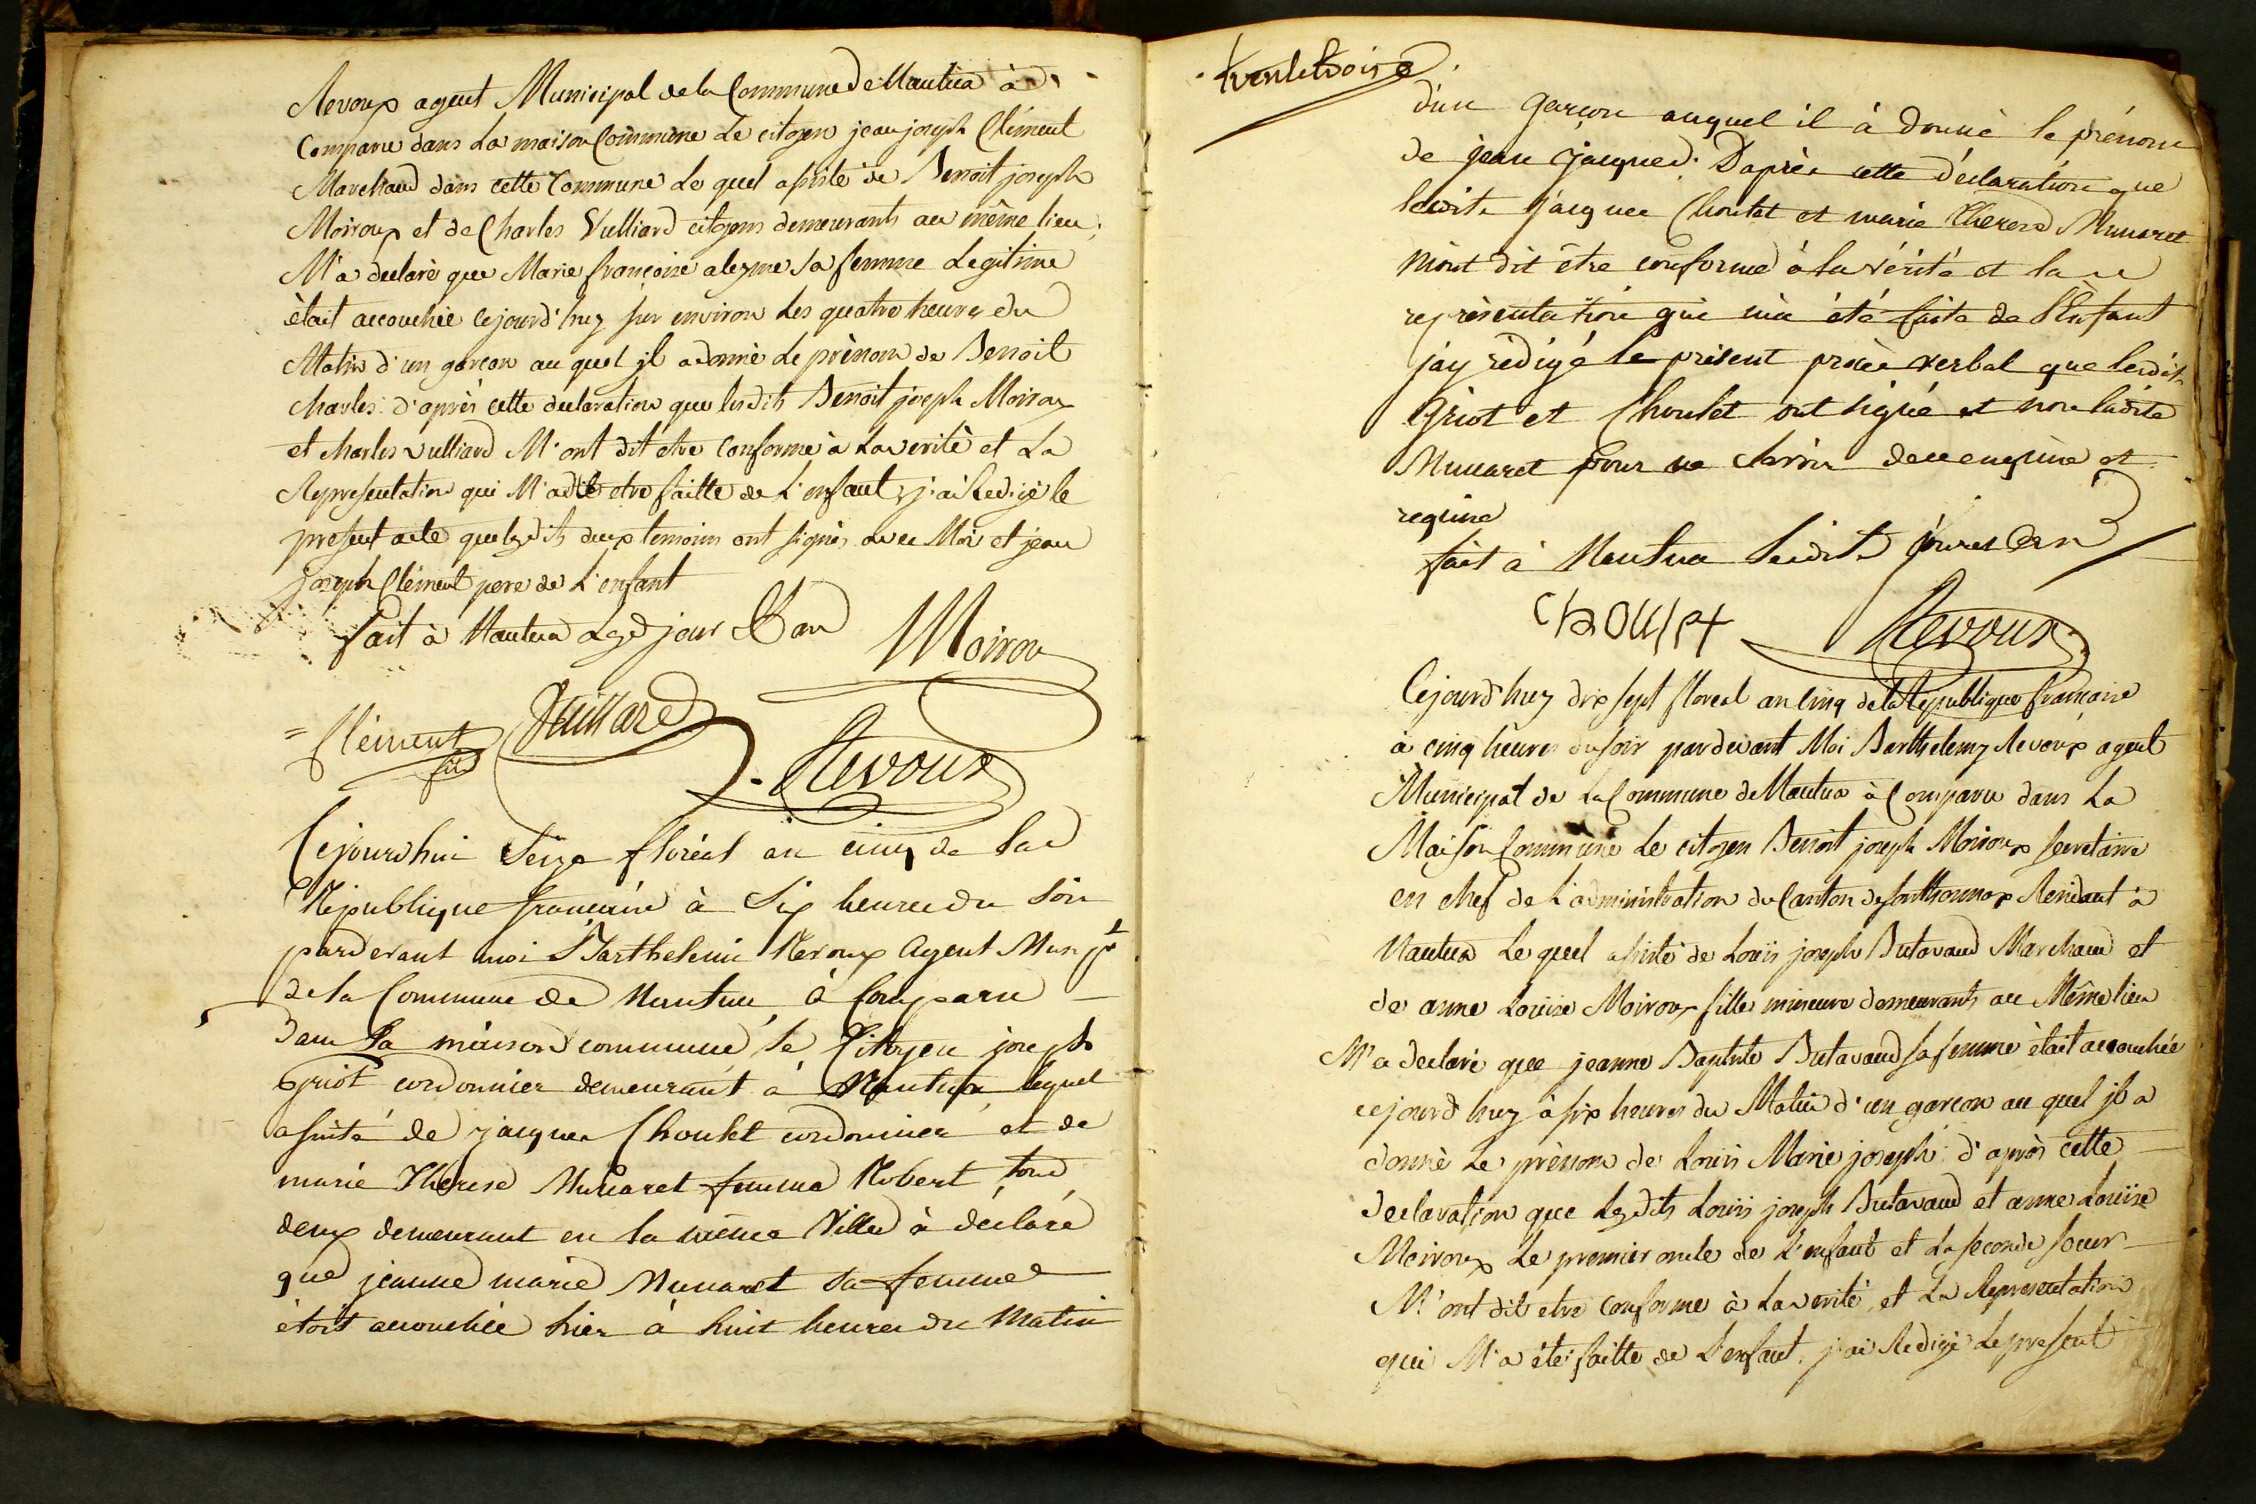 Revoux agent Municipal de la Commune de Nantua à
Comparu dans la maison Commune Le citoyen jean joseph Clément
Marchand dans cette Commune Le quel assisté de Benoit joseph
Moiroux et de Charles Vulliard citoyens demeurants au même lieu,
M'a declaré que Marie françoise aleyme sa femme Legitime
était accouchée cejourd'huy sur environ Les quatre heures du
Matin d'un garcon au quel jl a donné Le prènom de Benoit
charles. d'après cette declaration que lesdits Benoit joseph Moiroux
et charles vulliard M'ont dit etre Conforme à La verité et La
Representation qui M'a dit etre faitte de L'enfant, j'ai Redigé le
present acte que lesdits deux temoins ont signés avec Moi et jean
joseph Clément pere de L'enfant
fait à Nantua Lesd jour et an Moirou
= Clément fils Vuilliard Revoux
Cejourd'hui Seize floréal an cinq de la
République française à Six heures du Soir
pardevant moi Barthelemi Revoux Agent Munpt
de la Commune de Nantua, à Comparu
dans la maison commune le Citoyen joseph
Griot cordonnier demeurant à Nantua lequel
assisté de jacques Choulet cordonnier et de
marie Therese Munaret femme Robert tous
deux demeurant en la même Ville à déclaré
que jeanne marie Munaret sa femme
étoit accouchée hier à huit heures du Matin
trentetrois
d'un garçon auquel il à donné le prénom
de jean jacques. D'après cette déclaration que
lesdits jacques Choulet et marie Therese Munaret
m'ont dit être conforme à la vérité et la
représentation qui m'a été faite de l'Enfant
j'ay rédigé le présent procès verbal que lesdits
Griot et Choulet ont signé et non ladite
Munaret pour ne Savoir de ce enquise et
requise
fait à Nantua lesdits jour et an
choulet Revoux
Cejourd'huy dix sept floreal an cinq de la République francaise
à cinq heures du soir pardevant Moi Barthelemy Revoux agent
Municipal de La Commune de Nantua à Comparu dans La
Maison Commune Le citoyen Benoit joseph Moiroux secretaire
en chef de L'administration du Canton de sonthonnax Residant à
Nantua Le quel assisté de Louis joseph Butavand Marchand et
de anne Louise Moiroux fille mineure demeurants au Même lieu
M'a declaré que jeanne Baptiste Butavand sa femme était accouchée
cejourd'huy à six heures du Matin d'un garcon au quel jl a
donné Le prènom de Louis Marie joseph. d'après cette
declaration que Lesdits Louis joseph Butavand et anne Louise
Moiroux Le premier oncle de L'enfant et La seconde soeur
M'ont dit etre Conforme à La verité, et La Representation
qui M'a été faitte de L'enfant. j'ai Redigé Le present